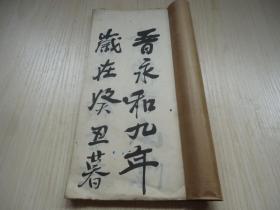 晋永和九年
歲在癸丑暮